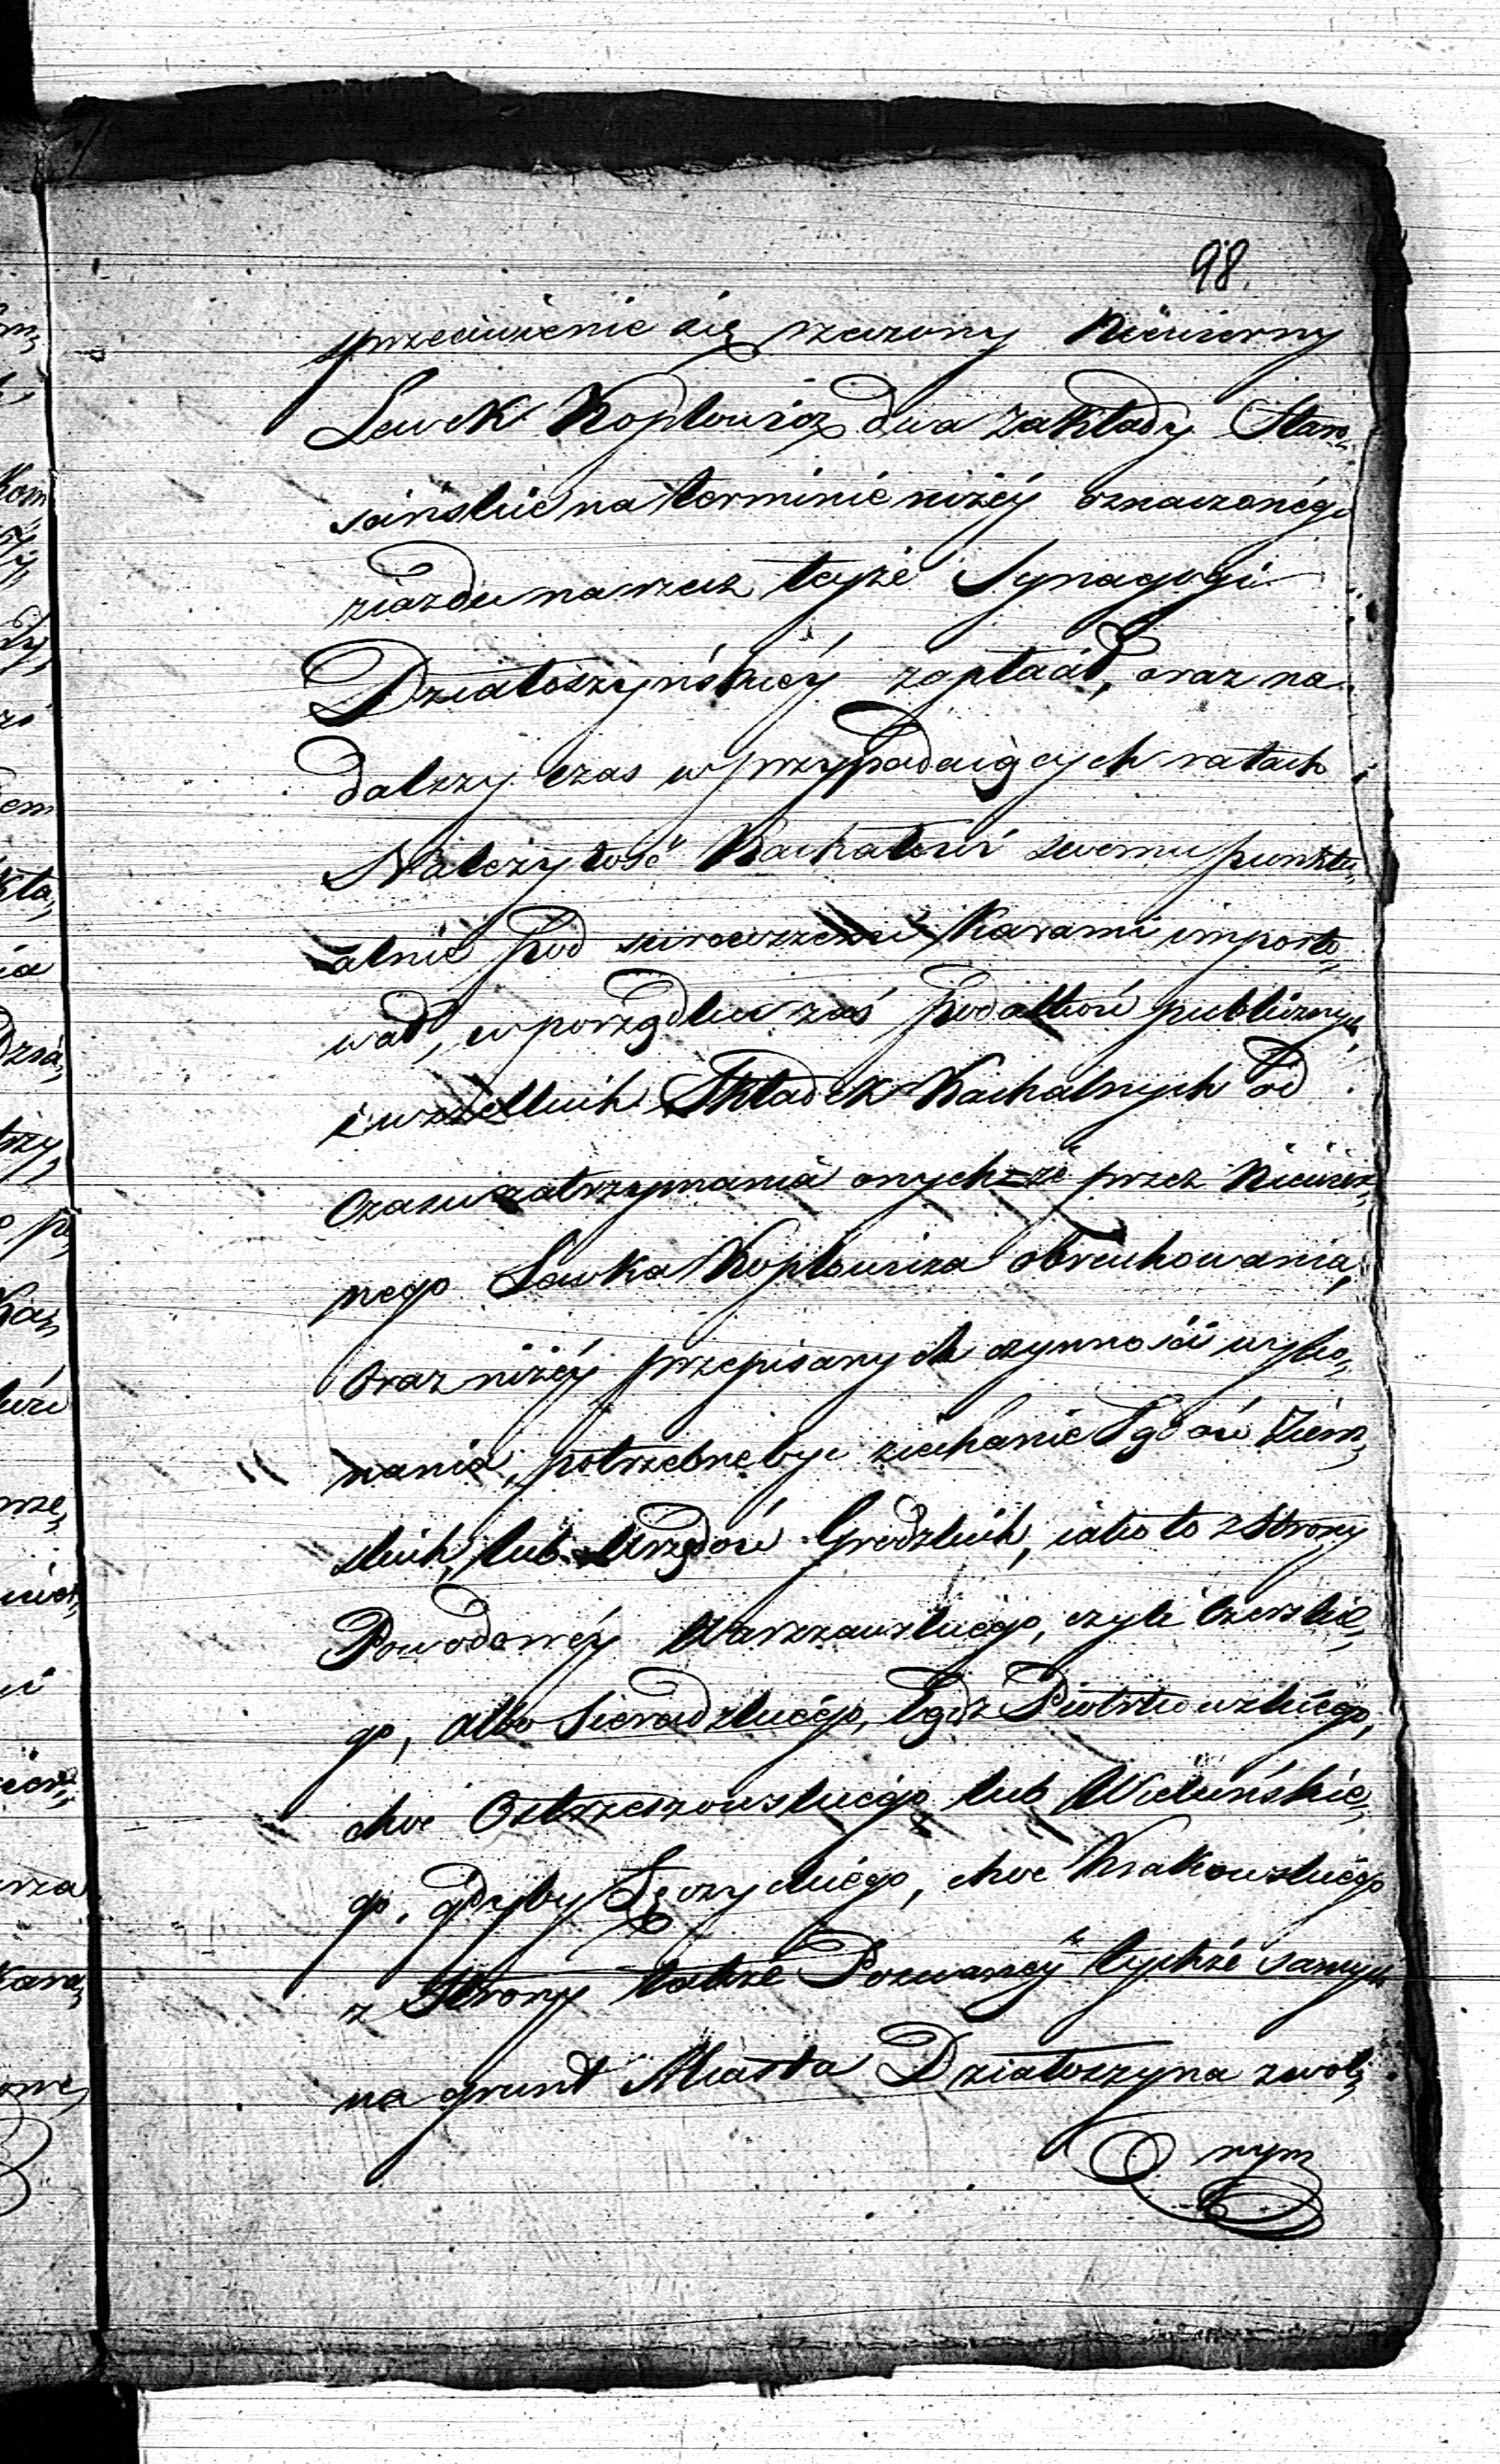 98.
sprzeciwienie się rzeczony Niewierny
Lewek Koplowicz dwa zakłady Staro„
ścińskie na terminie niżéy oznaczonégo
ziazdu na rzecz teyże Synagogi
Działoszyńskiéy zapłacił, oraz na
dalszy czas w przypadaiących ratach
Należytość Kachałowi swemu punktu„
alnie pod surowszemi karami importo„
wał, w porządku zaś podatków publicznych,
i wszelkich Składek Kachalnych od
czasu zatrzymania onych=że przez Niewier„
nego Lewka Koplowicza obrachowania,
oraz niżéy przepisanych czynności wyko„
nania, potrzebne być ziechanie Sądów Ziem„
skich, lub Urzędów Grodzkich, iako to z Strony
Powodowéy Warszawskiégo, czyli Czerskie„
go, albo Sieradzkiégo, Sądz Piotrkowskiégo,
choć Ostrzeszowskiégo lub Wieluńskie„
go, gdyby Łęczyckiégo, choć Krakowskiégo
z Strony także Pozwanéy tychże samych
na grunt Miasta Działoszyna zwoł„
nym